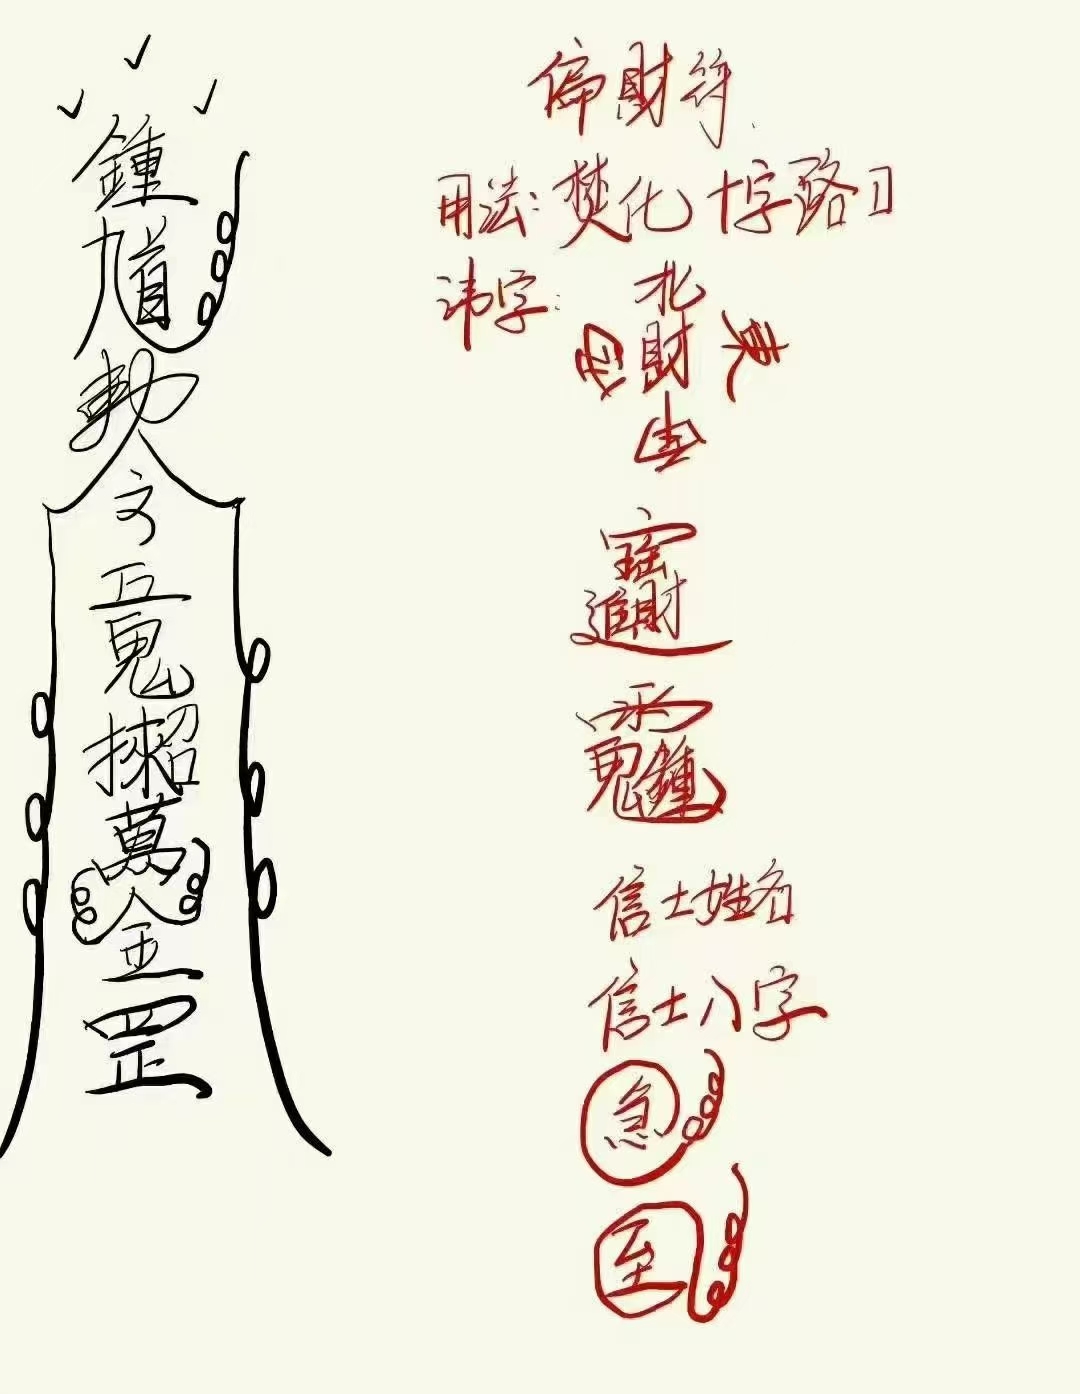 鍾
馗
敕
令
文
五
鬼
招
萬
金
罡
偏財符
用法：焚化十字路口
讳字：
北
西財東
南
進財
鬼鍾
信士姓名
信士八字
急
至